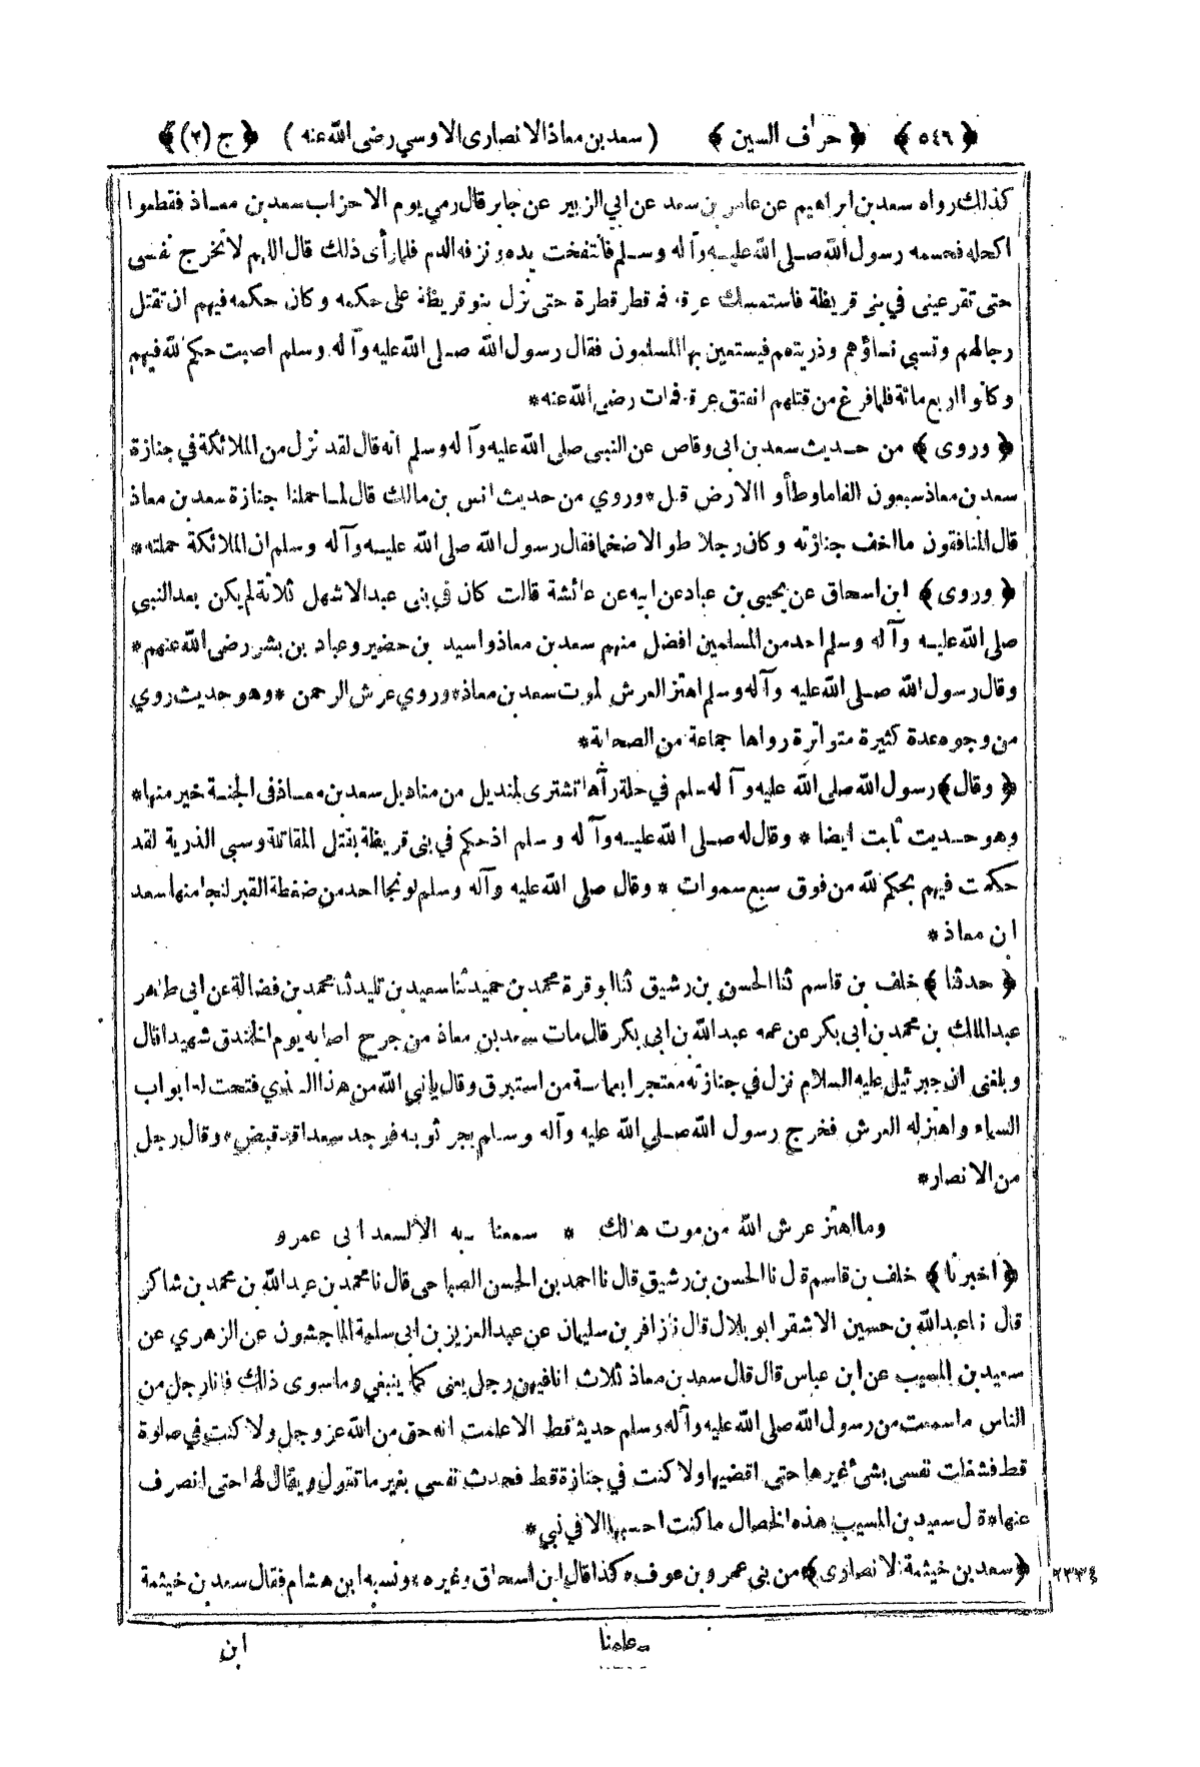 ﴿ ٥٤٦ ﴾ ﴿ حرف السين ﴾ ( سعد بن معاذ الانصارى الاوسي رضى الله عنه ) ﴿ ج (٢) ﴾
كذلك رواه سعد بن ابراهيم عن عامر بن سعد عن ابي الزبير عن جابر قال رمي يوم الاحزاب سعد بن معاذ فقطعوا
اكحله فحسمه رسول الله صلى الله عليه وآله وسلم فانتفخت يده ونزفه الدم فلما رأى ذلك قال اللهم لا تخرج نفسى
حتى تقر عينى في بني قريظة فاستمسك عرقه فما قطر قطرة حتى نزل بنو قريظة على حكمه وكان حكمه فيهم ان تقتل
رجالهم وتسبى نساؤهم وذريتهم فيستعين بها المسلمون فقال رسول الله صلى الله عليه وآله وسلم اصبت حكم الله فيهم
وكانوا اربع مائة فلما فرغ من قتلهم انفتق عرقه فمات رضى الله عنه *
﴿ وروى ﴾ من حديث سعد بن ابى وقاص عن النبى صلى الله عليه وآله وسلم انه قال لقد نزل من الملائكة في جنازة
سعد بن معاذ سبعون الفا ما وطأوا الارض قبل * وروي من حديث انس بن مالك قال لما حملنا جنازة سعد بن معاذ
قال المنافقون ما اخف جنازته وكان رجلا طوالا ضخما فقال رسول الله صلى الله عليه وآله وسلم ان الملائكة حملته *
﴿ وروى ﴾ ابن اسحاق عن يحيى بن عباد عن ابيه عن عائشة قالت كان في بنى عبد الاشهل ثلاثة لم يكن بعد النبي
صلى الله عليه وآله وسلم احد من المسلمين افضل منهم سعد بن معاذ واسيد بن حضير وعباد بن بشر رضى الله عنهم *
وقال رسول الله صلى الله عليه وآله وسلم اهتز العرش لموت سعد بن معاذ * وروي عرش الرحمن * وهو حديث روي
من وجوه عدة كثيرة متواترة رواها جماعة من الصحابة *
﴿ وقال ﴾ رسول الله صلى الله عليه وآله وسلم في حلة رآها تشترى لمنديل من مناديل سعد بن معاذ فى الجنة خير منها *
وهو حديث ثابت ايضا * وقال له صلى الله عليه وآله وسلم اذ حكم في بنى قريظة بقتل المقاتلة وسبى الذرية لقد
حكمت فيهم بحكم الله من فوق سبع سموات * وقال صلى الله عليه وآله وسلم لو نجا احد من ضغطة القبر لنجا منها سعد
ابن معاذ *
﴿ حدثنا ﴾ خلف بن قاسم ثنا الحسن بن رشيق ثنا ابو قرة محمد بن حميد ثنا سعيد بن تليد ثنا محمد بن فضالة عن ابى طاهر
عبد الملك بن محمد بن ابى بكر عن عمه عبد الله بن ابى بكر قال مات سعد بن معاذ من جرح اصابه يوم الخندق شهيدا قال
وبلغنى ان جبرئيل عليه السلام نزل في جنازته معتجرا بعمامة من استبرق وقال يا نبي الله من هذا الذي فتحت له ابواب
السماء واهتز له العرش فخرج رسول الله صلى الله عليه وآله وسلم يجر ثوبه فوجد سعدا قد قبض * وقال رجل
من الانصار *
وما اهتز عرش الله من موت هالك * سمعنا به الا لسعد ابى عمرو
﴿ اخبرنا ﴾ خلف بن قاسم قال نا الحسن بن رشيق قال نا احمد بن الحسن الصباحى قال نا محمد بن عبد الله بن محمد بن شاكر
قال نا عبد الله بن حسين الاشقر ابو بلال قال نا زافر بن سليمان عن عبد العزيز بن ابى سلمة الماجشون عن الزهري عن
سعيد بن المسيب عن ابن عباس قال قال سعد بن معاذ ثلاث انا فيهن رجل يعنى كما ينبغي وما سوى ذلك فانا رجل من
الناس ما سمعت من رسول الله صلى الله عليه وآله وسلم حديثا قط الا علمت انه حق من الله عز وجل ولا كنت في صلوة
قط فشغلت نفسى بشئ غيرها حتى اقضيها ولا كنت في جنازة قط فحدثت نفسى بغير ما تقول ويقال لها حتى انصرف
عنها * قال سعيد بن المسيب هذه الخصال ما كنت احسبها الا في نبي *
﴿ سعد بن خيثمة الانصارى ﴾ من بني عمرو بن عوف * كذا قال ابن اسحاق وغيره * ونسبه ابن هشام فقال سعد بن خيثمة ٢٣٣٤
علمنا ابن